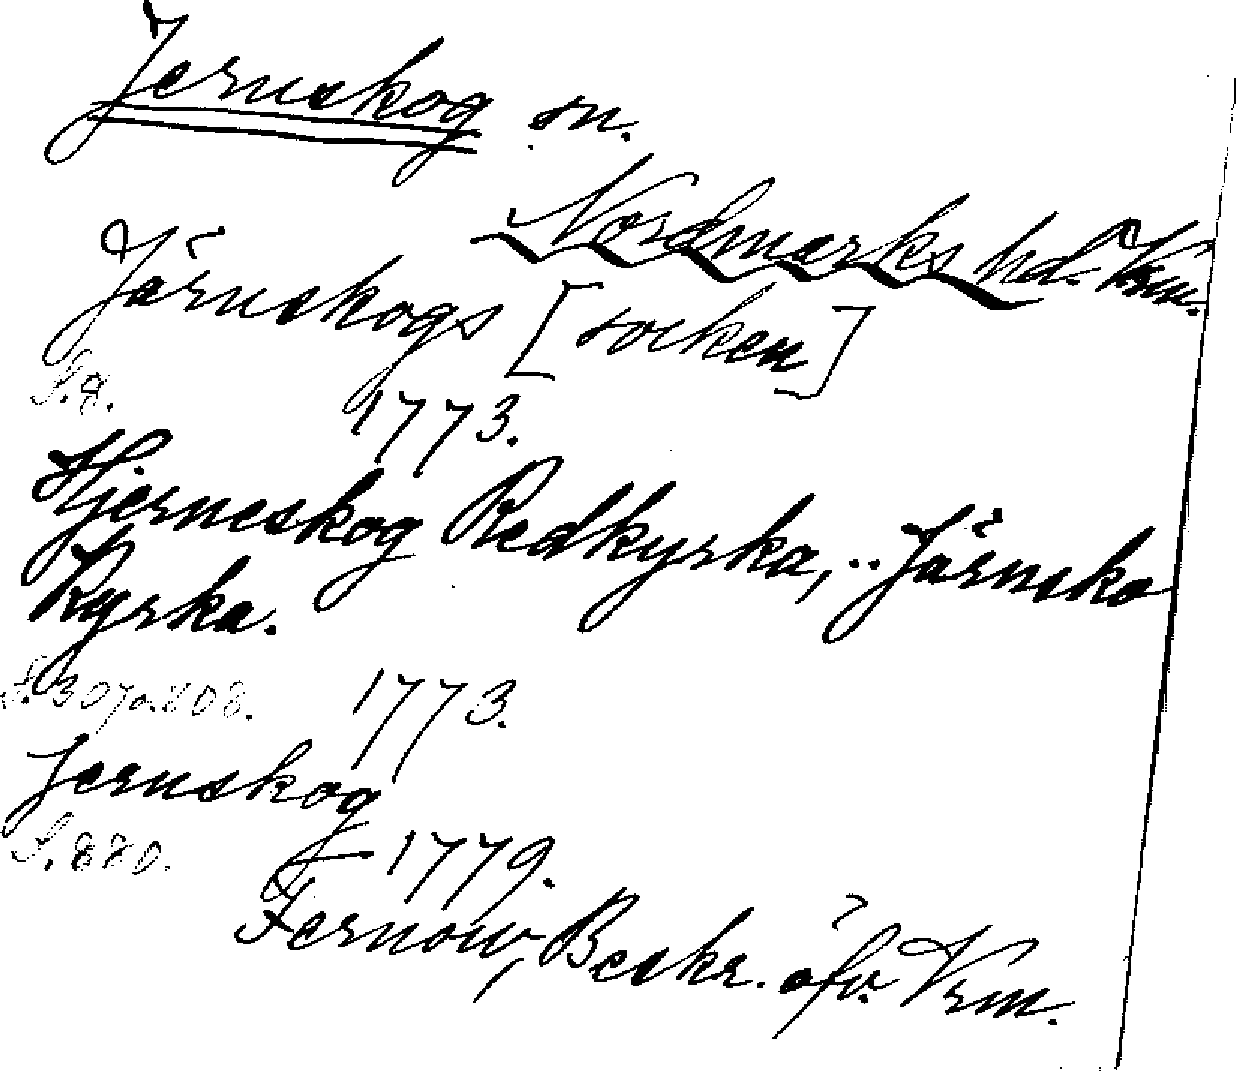 Jernskog sn.
Nordmarks hd. Vrm.
Järnskogs [socken]
S. 8. 1773.
Hjerneskog Redkyrka, .. Järnsko
Kyrka.
S. 307 o. 808. 1773.
Jernskog
S. 880. 1779.
Fernow, Beskr. öfv. Vrm.